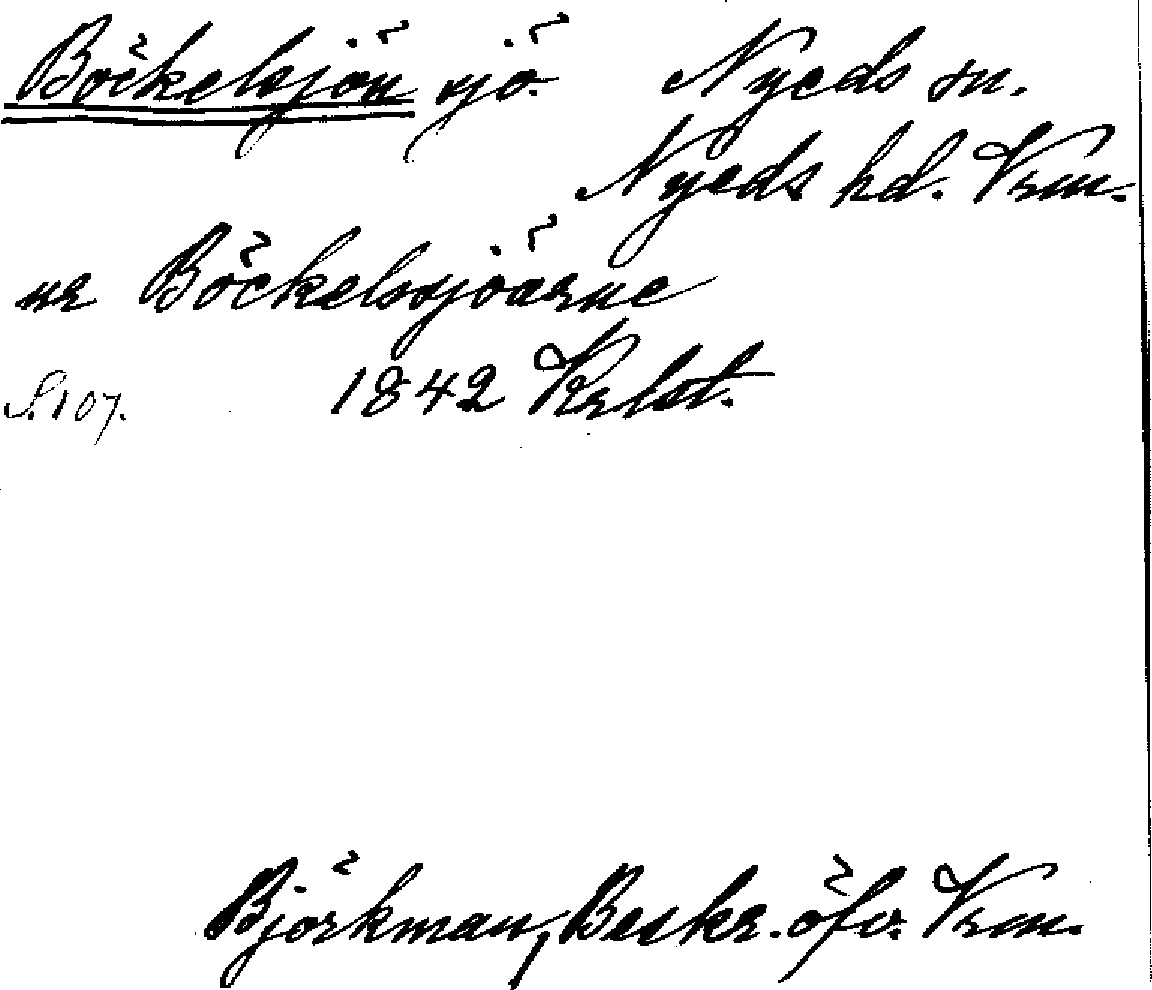 Böckelsjön sjö. Nyeds sn.
Nyeds hd. Vrm.
ur Böckelssjöarne
S. 107. 1842 Krlst.
Björkman, Beskr. öfv. Vrm.